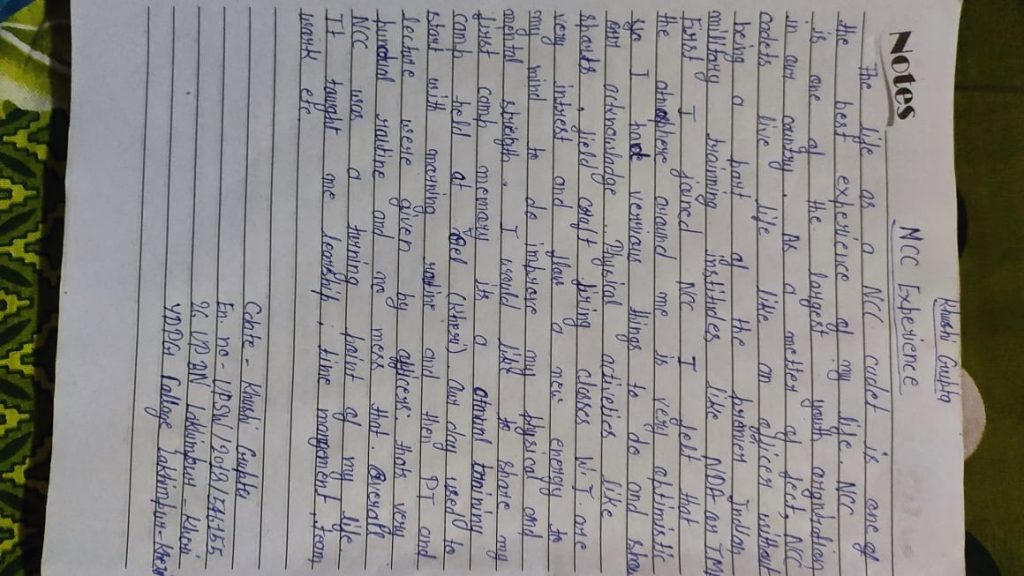 Khushi Gupta
Notes
NCC Experience
The life as a NCC cadet is one of
the best experience of my life. NCC
is one of the largest youth organization
in our country. As a metter of fect, NCC
cadets live life like an officer without
being a part of the premier Indian
military training institudes like NDA or IMA
First I joined NCC I felt that
the atmosphere around me is very optimistic
I have verrious things to do and show
and acknowledge. Physical activities like
shorts, field craft firing classes W.T. are
very intrest and flow a new energy to
my mind to do improve my physical and
mental strength. I would like to share my
first camp memory is a annual training
camp held at Gjel (Kheri). Our day used to
start with morning routine and then PT and
lecture were given by officers. thats very
punctual routine and me mess that. Overall
NCC was a turning point of my life.
It tought me leadship, time mangement, team
work etc.
Cdate - Khushi Gupta
En. no - UPSW/2018/546355
26 UP BN Lakhimpur - Kheri
YDPG College Lakhimpur-Kheri